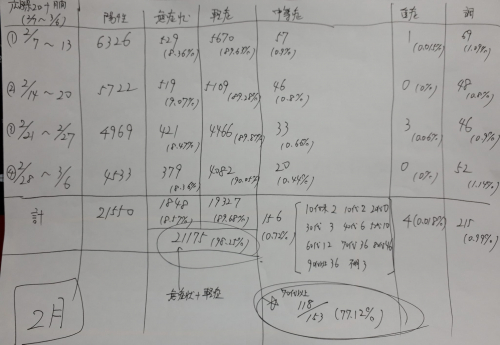 陽性 無症状 軽症 中等症 重症 調
(2/7～3/6)
① 2/7～13 6326 529 (8.36%) 5670 (89.63%) 57 (0.9%) 1 (0.015%) 69 (1.09%)
② 2/14～20 5722 519 (9.07%) 5109 (89.28%) 46 (0.8%) 0 (0%) 48 (0.8%)
③ 2/21～2/27 4969 421 (8.47%) 4466 (89.87%) 33 (0.66%) 3 (0.06%) 46 (0.9%)
④ 2/28～3/6 4533 379 (8.36%) 4082 (90.05%) 20 (0.44%) 0 (0%) 52 (1.14%)
計 21550 1848 (8.57%) 19327 (89.68%) 156 (0.72%) 4 (0.018%) 215 (0.99%)
21175 (98.25%)
10代 2 20代 0
30代 3 40代 6 50代 10
60代 12 70代 36 80代 46
90代以上 36 不明 3
無症状+軽症
2月
118/153 (77.12%)